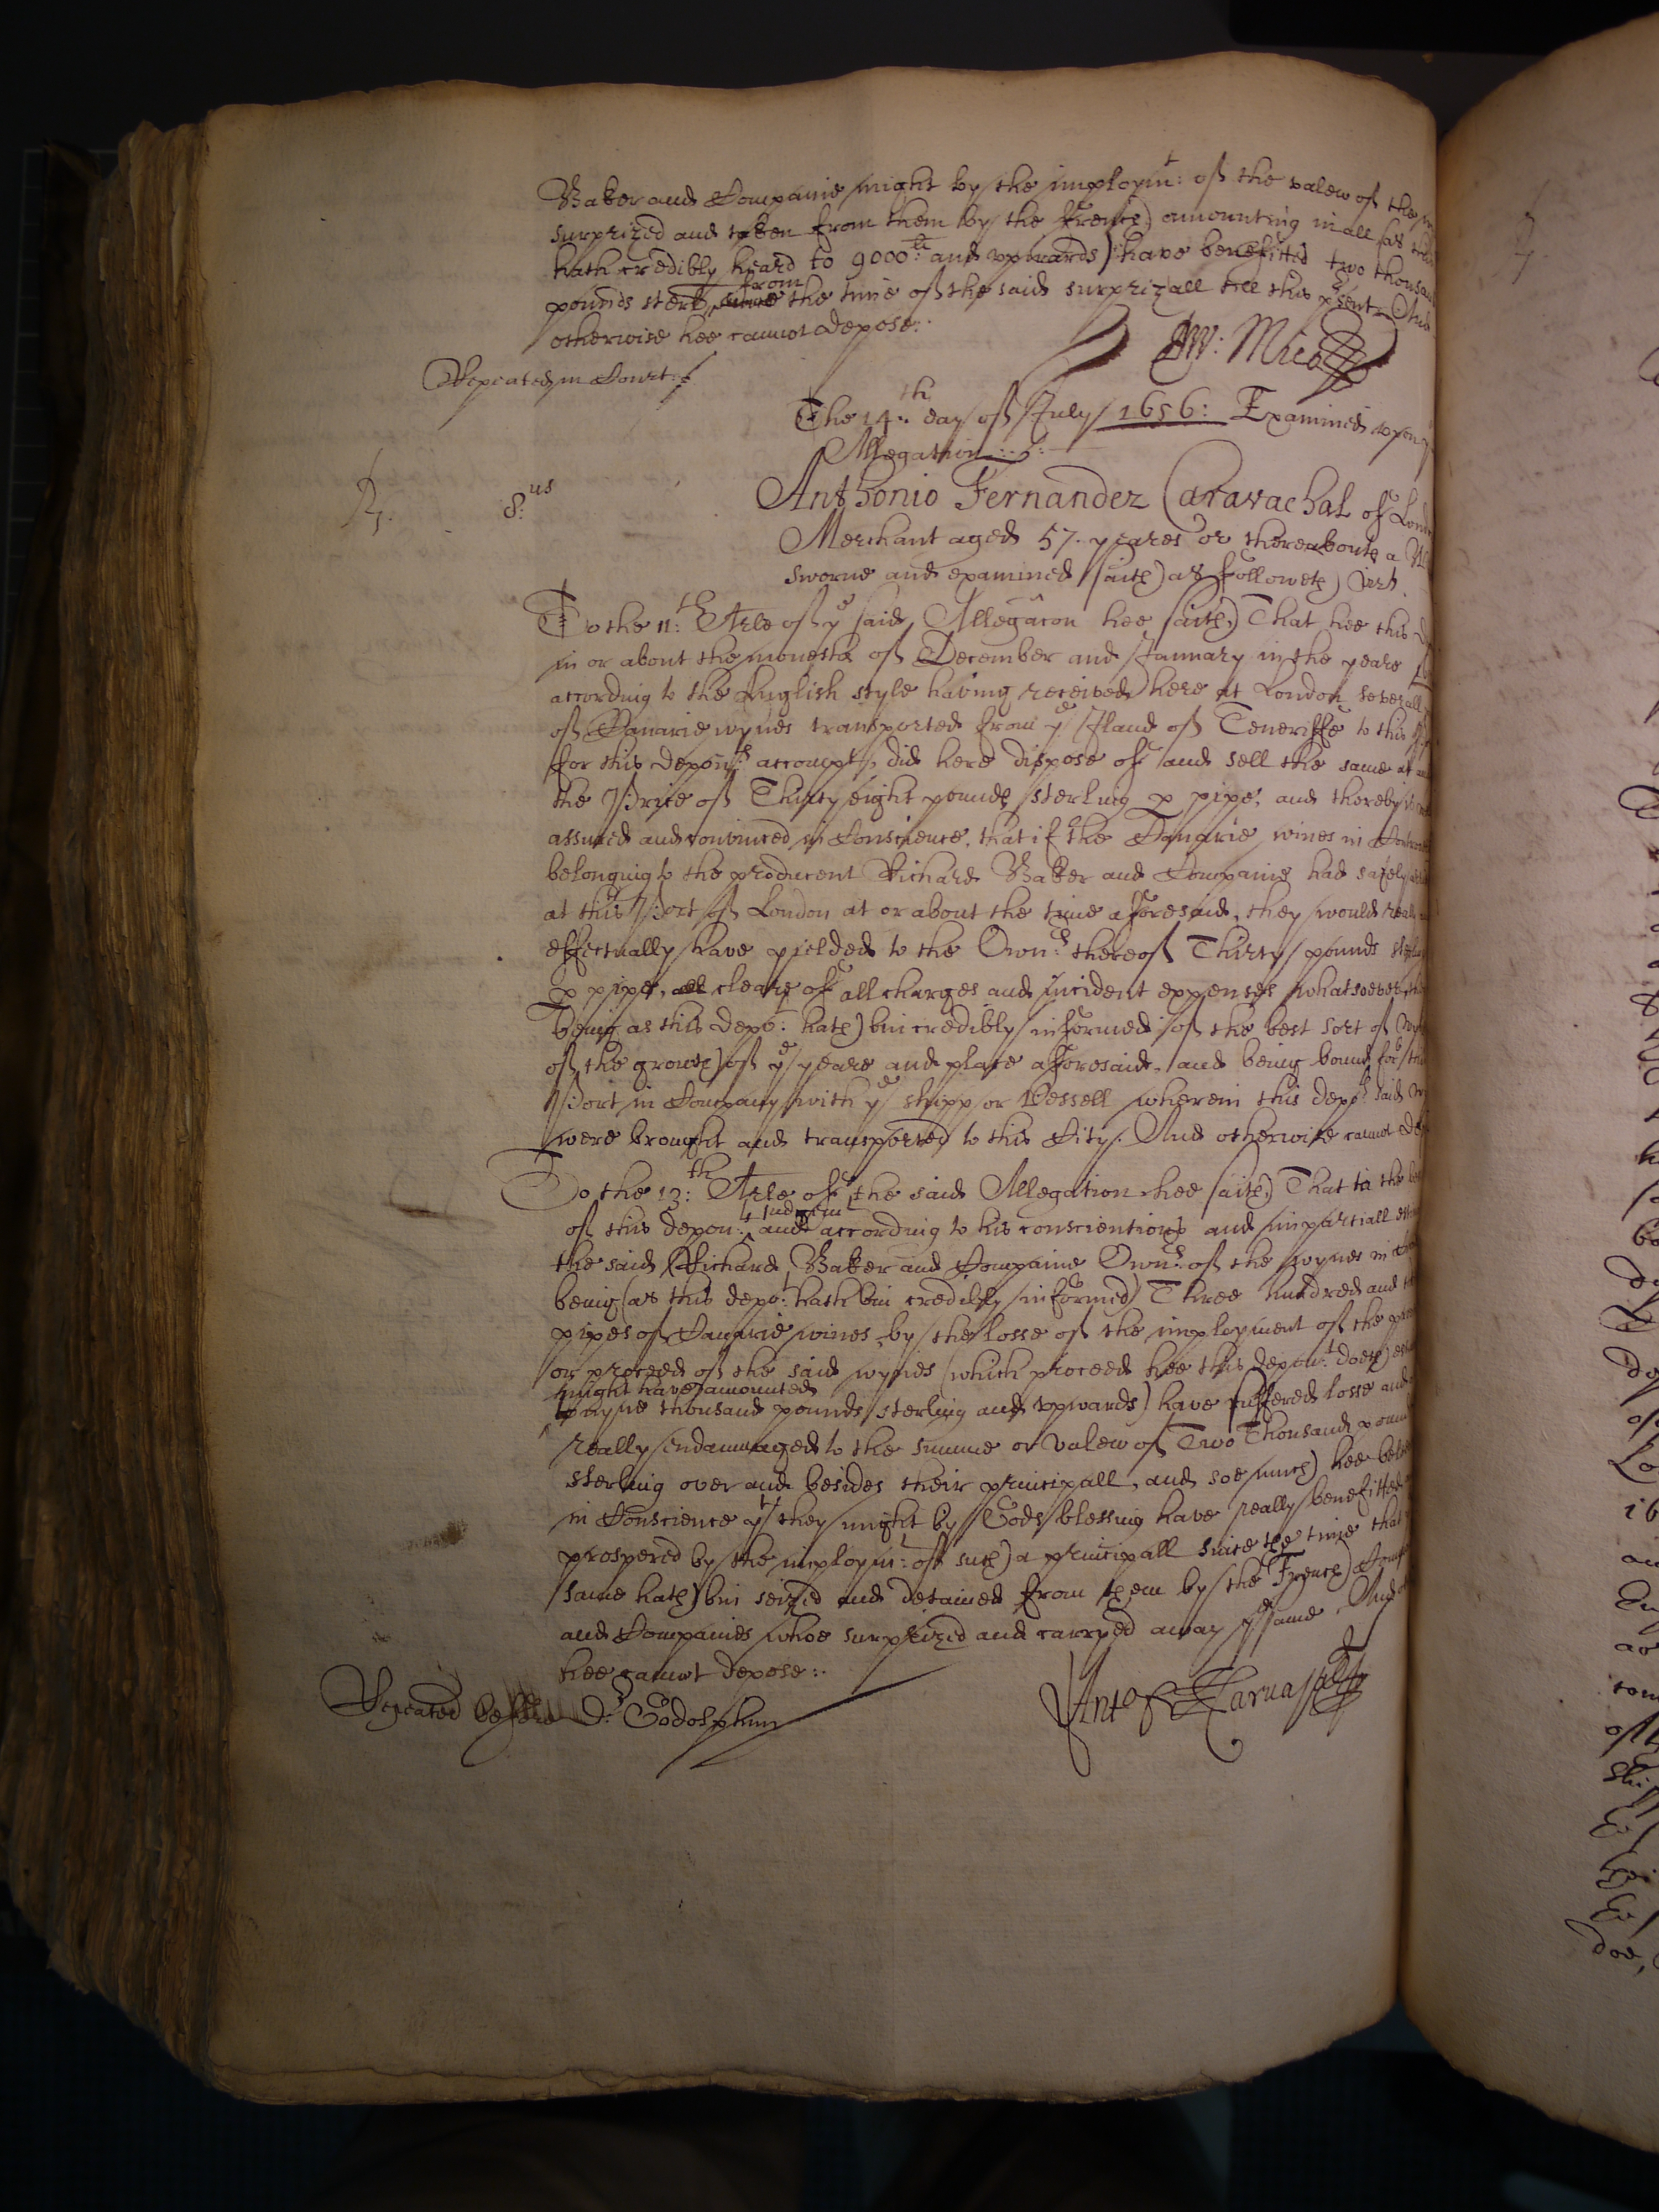 Baker and Companie might by the imploym:t of the valew of the
surprized and taken from them by the French) amounting in all (as
hath credibly heard to 9000:li and upwards) have benefitted two thousand
pounds sterl from the time of the said surprizall till this p̃sent And
otherwise hee cannot depose:.
Repeated in Court:
W: Mico
The 14:th day of July 1656: Examined upon
Allegation
8:us
Anthonio Fernandez Caravachal of London
Merchant aged 57. yeares or thereabouts a
sworne and examined saith as followeth vizt.
To the 11:th Arle of ye said Allegac̃on hee saith That hee this
in or about the moneths of December and January in the yeare
according to the English style having received here at London severall
of Canarie wynes transported from ye Island of Teneriffe to this
for this depon:ts accompt, did here dispose of and sell the same at
the Price of Thirty eight pounds sterling p pipe, and thereby is
assured and convinced in Conscience, that if the Canarie wines in
belonging to the producent Richard Baker and Companie had safely
at this Port of London at or about the time aforesaid, they would really
effectually have yielded to the Own:rs thereof Thirty pounds sterling
p pipe, cleare of all charges and incident expenses whatsoever,
being as this depo:t hath bin credibly informed of the best sort of
of the growth of ye yeare and place aforesaid, and being bound for this
Port in Company with ye shipp or vessell wherein this depo:ts said
were brought and transported to this City. And otherwise cannot
To the 13:th Arle of the said Allegation hee saith That to the
of this depon:ts judgem:t and according to his conscientious and impartiall
the said Richard Baker and Companie Own:rs of the wynes in
being (as this depo:t hath bin credibly informed) Three hundred and
pipes of Canarie wines by the losse of the imployment of the
or proceed of the said wynes (which proceed hee this depon:t doeth
might have amounted
to nyne thousand pounds sterling and upwards) have suffered losse and
really endammaged to the summe or valew of Two Thousand pounds
sterling over and besides their principall, and soe much hee
in Conscience yt they might by Gods blessing have really benefitted
prospered by the imploym:t of such a principall since the time that
same hath bin seized and detained from them by the French
and Companies whoe surprized and carryed away ye same. And
hee cannot depose:.
Repeated before Dr: Godolphin
Anto f Carvajal